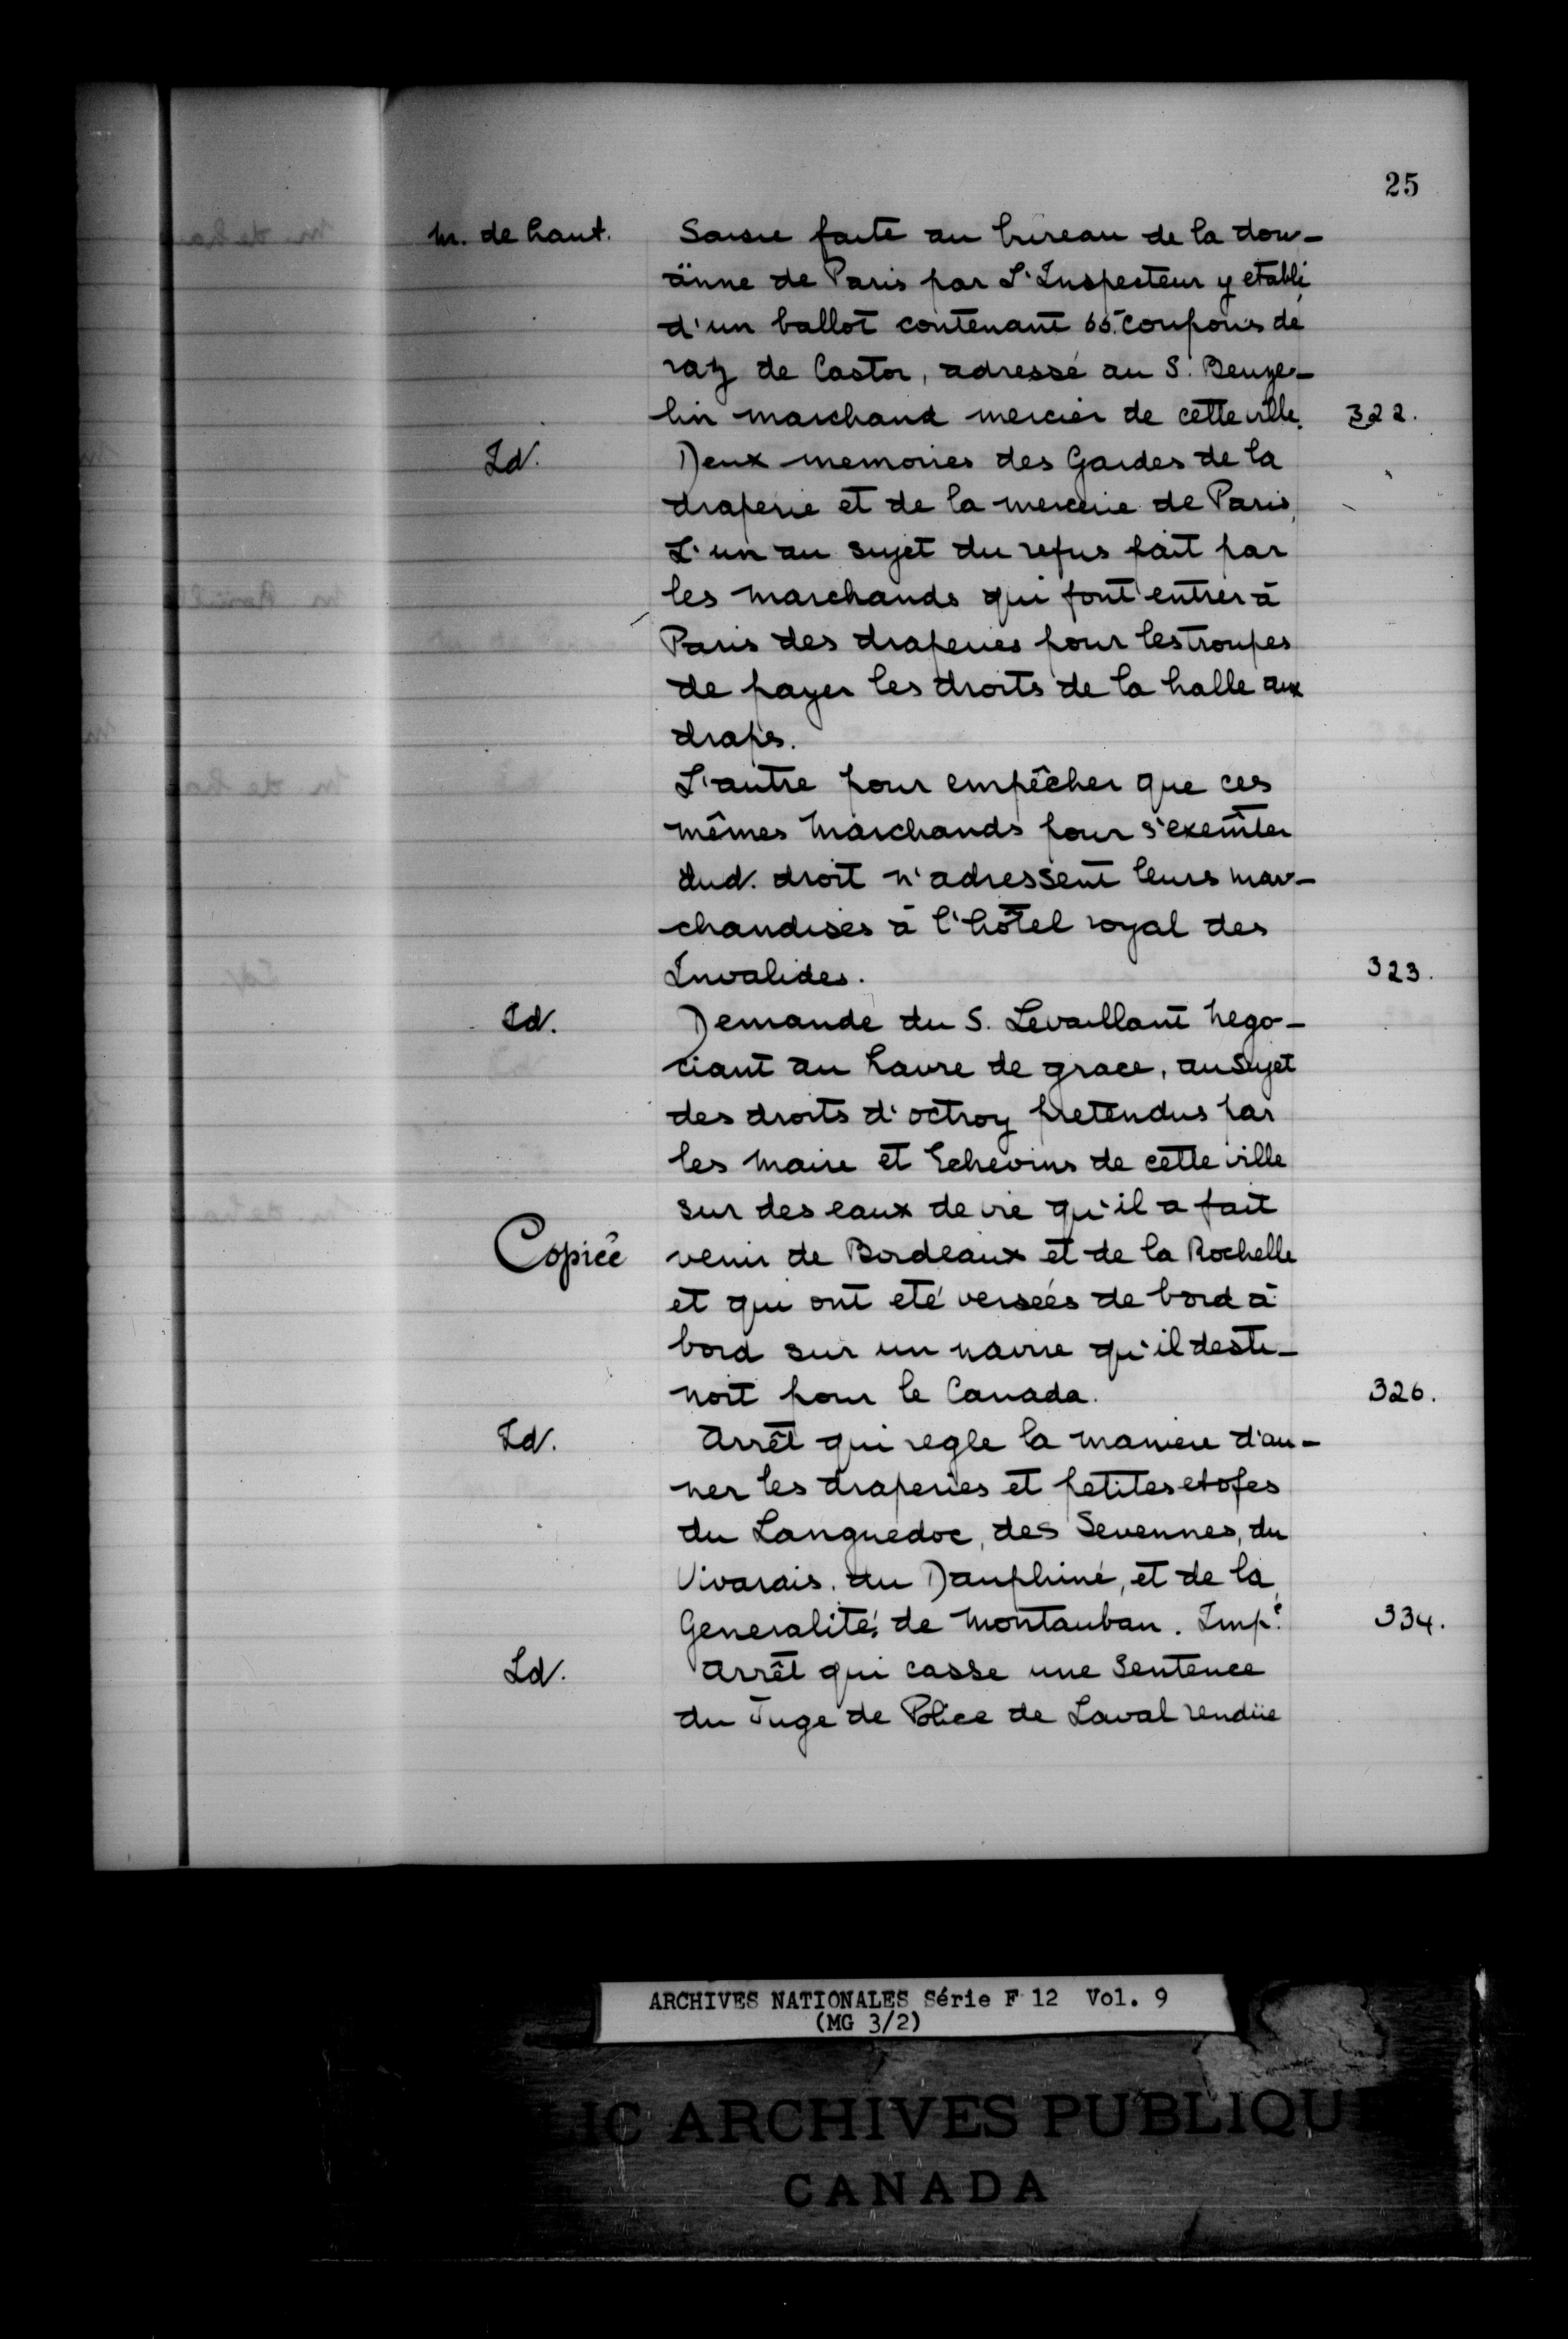 25
M. de haut. Saisie faite au bureau de la dou-
änne de Paris par L'Inspecteur y etabli,
d'un ballot contenant 65. coupons de
raz de Castor, adressé au S. Beuze-
lin marchand mercier de cette ville. 322.
Id. Deux memoires des Gardes de la
draperie et de la mercerie de Paris,
L'un au sujet du refus fait par
les marchands qui font entrer à
Paris des draperies pour les troupes
de payer les droits de la halle aux
draps.
L'autre pour empêcher que ces
mêmes marchands pour s'exemter
dud. droit n'adressent leurs mar-
chandises à l'hôtel royal des
Invalides. 323.
Id. Demande du S. Levaillant nego-
ciant au havre de grace, au sujet
des droits d'octroy pretendus par
les Maire et Echevins de cette ville
sur des eaux de vie qu'il a fait
Copiée venir de Bordeaux et de la Rochelle
et qui ont eté versées de bord à
bord sur un navire qu'il desti-
noit pour le Canada. 326.
Id. Arrêt qui regle la maniere d'au-
ner les draperies et petites etofes
du Languedoc, des Sevennes, du
Vivarais, du Dauphiné, et de la
Generalité de Montauban. Impé. 334.
Id. Arrêt qui casse une Sentence
du Juge de Police de Laval rendüe
ARCHIVES NATIONALES Série F 12 Vol. 9
(MG 3/2)
LIC ARCHIVES PUBLIQU
CANADA